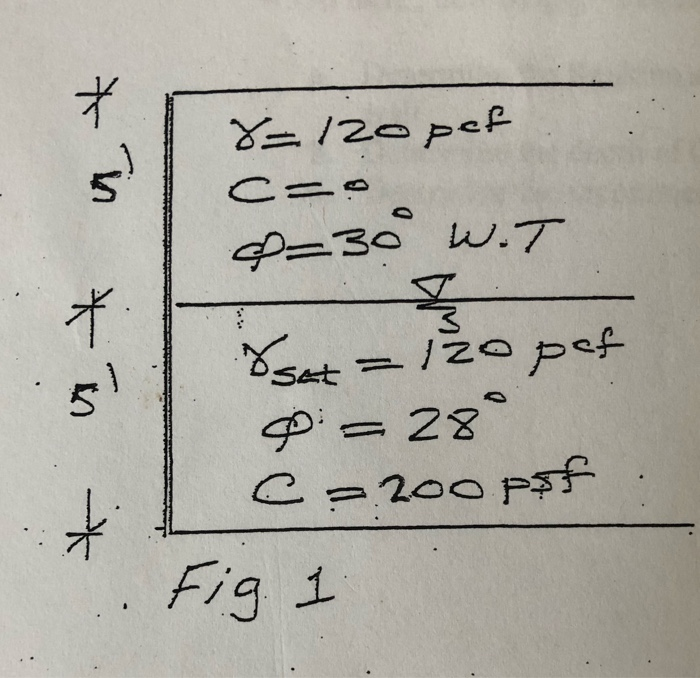 γ = 120 pcf
5'
C = 0
φ = 30° W.T
γsat = 120 pcf
5'
φ = 28°
C = 200 psf
Fig 1